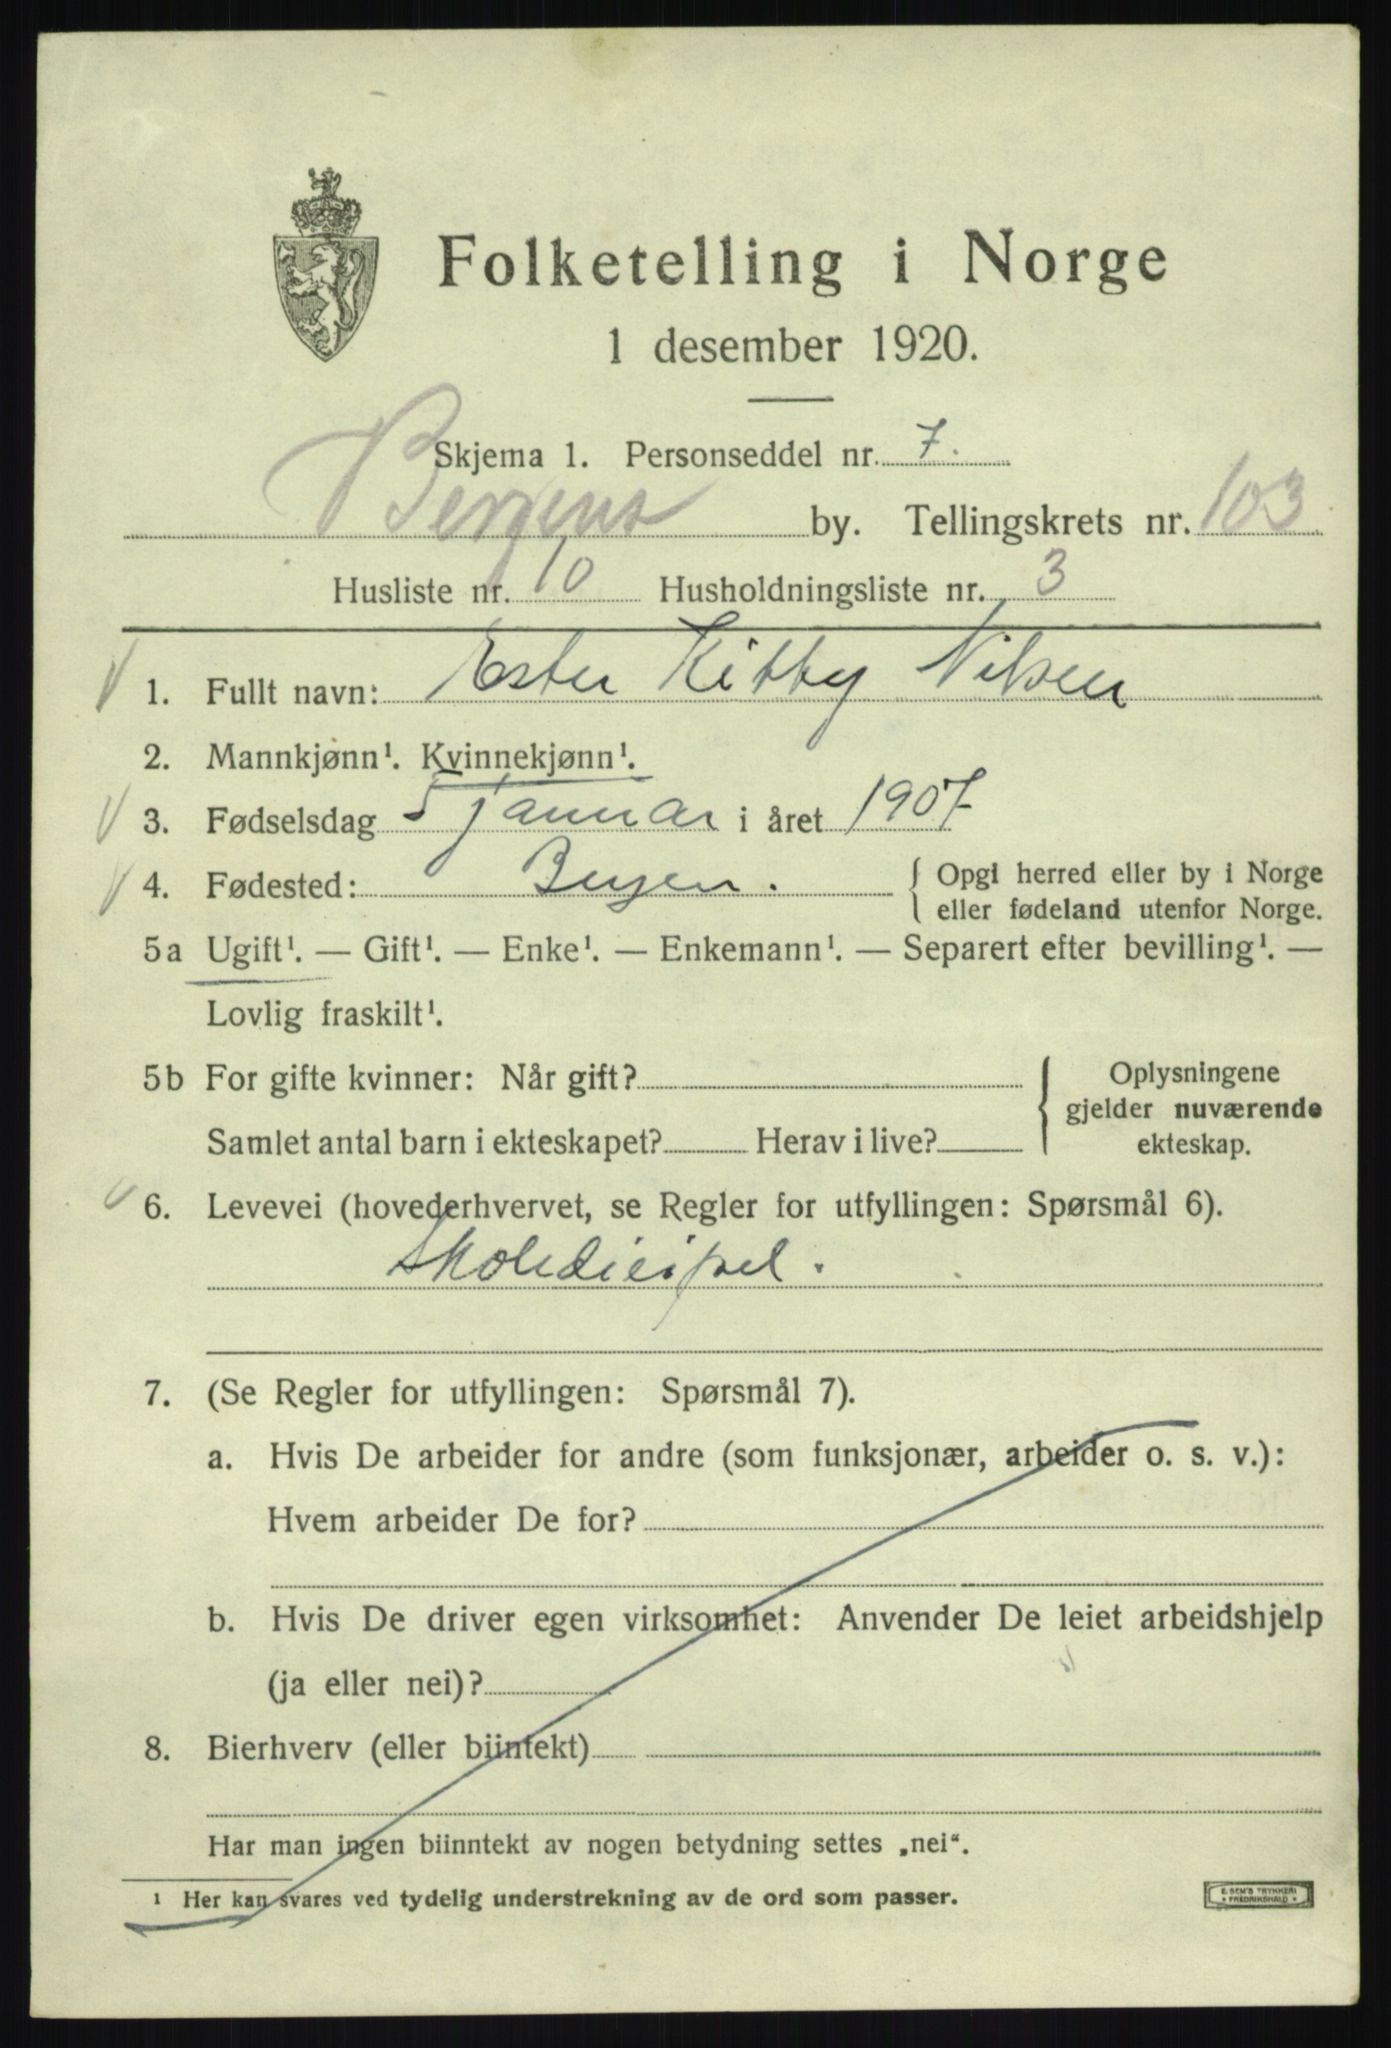 Folketelling i Norge
1 desember 1920.
Skjema 1. Personseddel nr. 7.
Bergens by. Tellingskrets nr. 103
Husliste nr. 10 Husholdningsliste nr. 3
1. Fullt navn: Ester Kitty Nilsen
2. Mannkjønn¹. Kvinnekjønn¹.
3. Fødselsdag 5 januar i året 1907
4. Fødested: Bergen. { Opgi herred eller by i Norge
eller fødeland utenfor Norge.
5a Ugift¹. — Gift¹. — Enke¹. — Enkemann¹. — Separert efter bevilling¹. —
Lovlig fraskilt¹.
5b For gifte kvinner: Når gift? { Oplysningene
gjelder nuværende
Samlet antal barn i ekteskapet? Herav i live? ekteskap.
6. Levevei (hovederhvervet, se Regler for utfyllingen: Spørsmål 6).
Skoledicipel.
7. (Se Regler for utfyllingen: Spørsmål 7).
a. Hvis De arbeider for andre (som funksjonær, arbeider o. s. v.):
Hvem arbeider De for?
b. Hvis De driver egen virksomhet: Anvender De leiet arbeidshjelp
(ja eller nei)?
8. Bierhverv (eller biintekt)
Har man ingen biinntekt av nogen betydning settes „nei“.
¹ Her kan svares ved tydelig understrekning av de ord som passer.
E. SEM'S TRYKKERI
* FREDRIKSHALD *